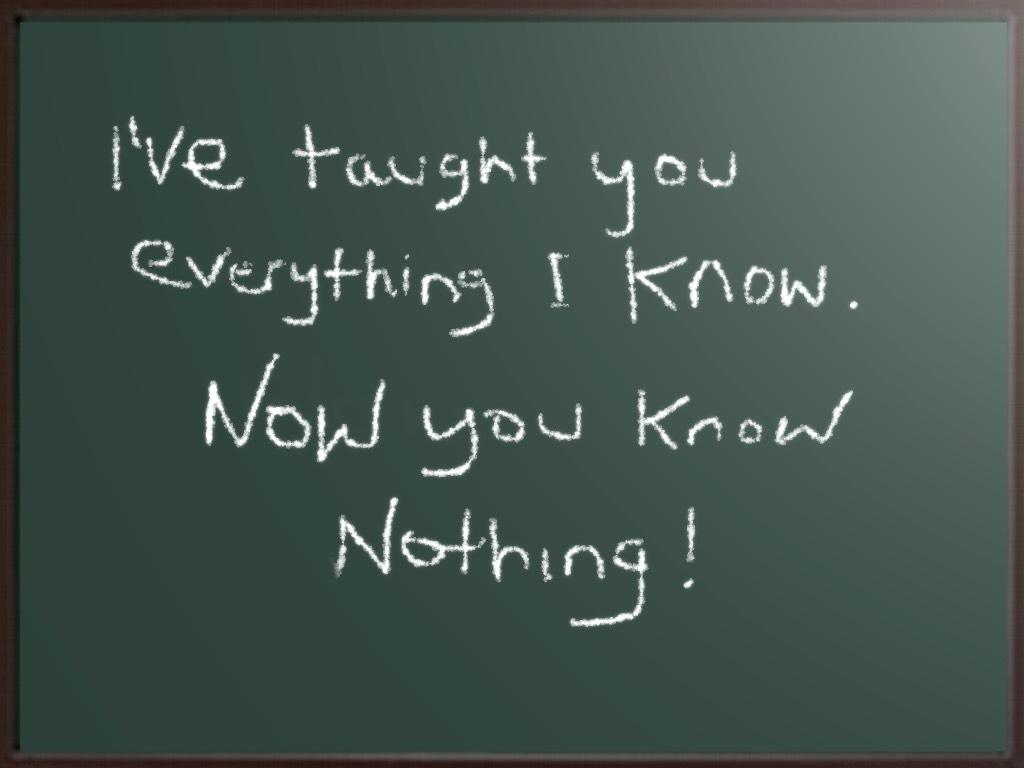 I've taught you
everything I know.
Now you know
Nothing!